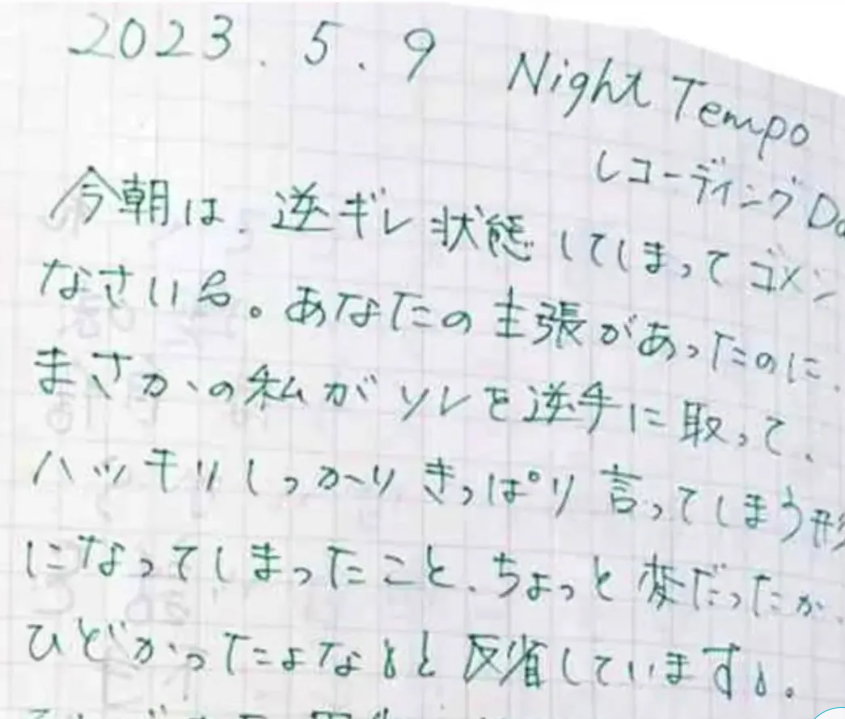 2023.5.9 Night Tempo
レコーディング
今朝は、逆ギレ状態してしまってゴメン
なさい。あなたの主張があったのに、
まさかの私がソレを逆手に取って、
ハッキリしっかりきっぱり言ってしまう形
になってしまったこと、ちょっと変だったか、
ひどかったよなと反省しています。